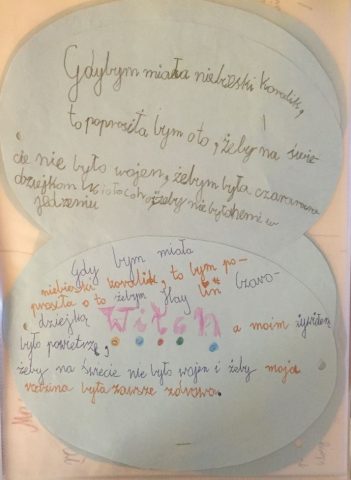 Gdybym miała niebieski koralik,
to poprosiła bym oto, żeby na świe
cie nie było wojen, żebym była czarowna
dziejkom żeby nie było chemi w
jedzeniu
Gdy bym miała
niebieski koralik, to bym po-
prosiła o to żebym Hay lin Czaro-
dziejką Witch a moim żywiołem
było powietrze,
żeby na świecie nie było wojen i żeby moja
rodzina była zawsze zdrowa.